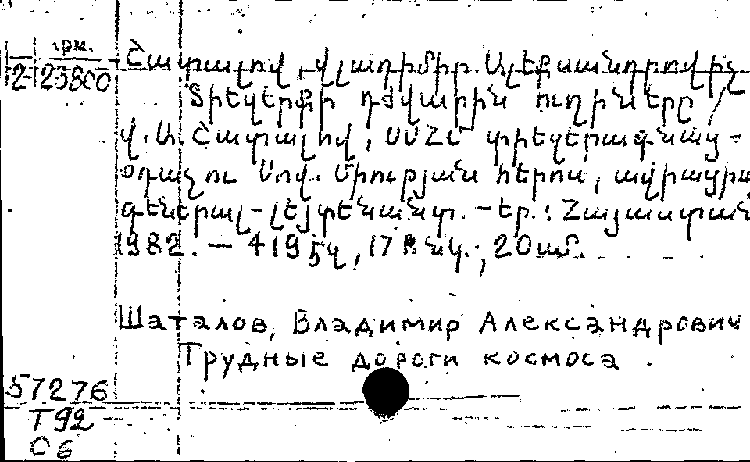 գրկ.
2 23800
Շատալով, Վլադիմիր Ալեքսանդրովիչ
Տիեզերքի դժվարին ուղիները /
Վ. Ա. Շատալով, ՍՍՀՄ տիեզերագնաց-
օդաչու Սով. Միության հերոս, ավիացիա
գեներալ-լեյտենանտ. - Եր.: Հայաստան
1982. — 419 էջ, 17 նկ.; 20 սմ.
Шаталов, Владимир Александрович
Трудные дороги космоса.
57276
Т 92
С 6